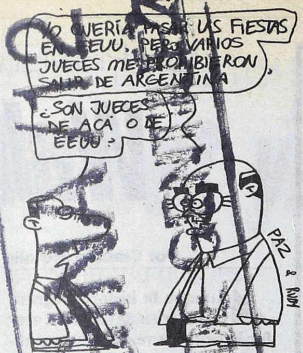 YO QUERÍA PASAR LAS FIESTAS
EN EEUU, PERO VARIOS
JUECES ME PROHIBIERON
SALIR DE ARGENTINA
¿SON JUECES
DE ACÁ O DE
EEUU?
PAZ
& RUDY